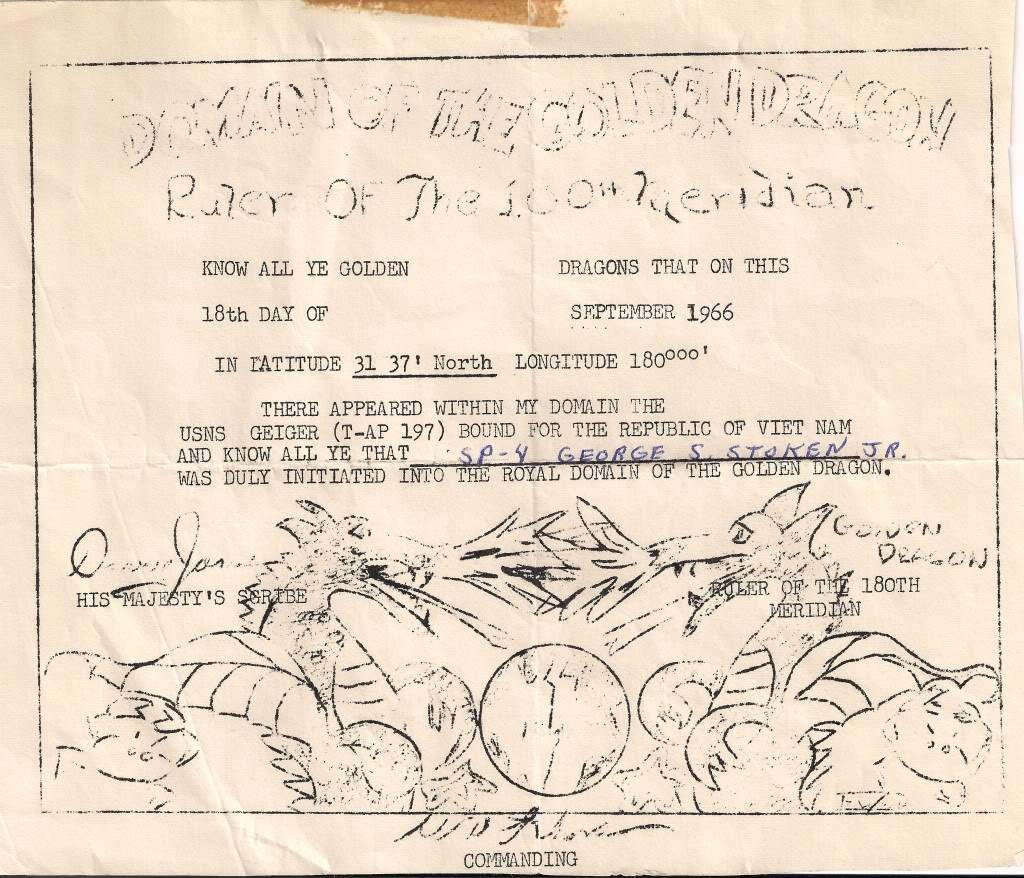 DOMAIN OF THE GOLDEN DRAGON
Ruler Of The 180th Meridian
KNOW ALL YE GOLDEN DRAGONS THAT ON THIS
18th DAY OF SEPTEMBER 1966
IN LATITUDE 31 37' North LONGITUDE 180ººº'
THERE APPEARED WITHIN MY DOMAIN THE
USNS GEIGER (T-AP 197) BOUND FOR THE REPUBLIC OF VIET NAM
AND KNOW ALL YE THAT SP-4 GEORGE S. STOKEN JR.
WAS DULY INITIATED INTO THE ROYAL DOMAIN OF THE GOLDEN DRAGON.
GOLDEN
DRAGON
HIS MAJESTY'S SCRIBE
RULER OF THE 180TH
MERIDIAN
COMMANDING